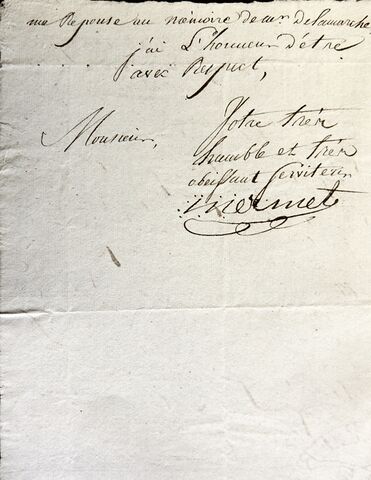 ma Reponse au mémoire de mr delamarche
j'ai L'honneur d'étre
avec Respect,
Monsieur,
Votre trér
humble et trér
obeissant Serviteur